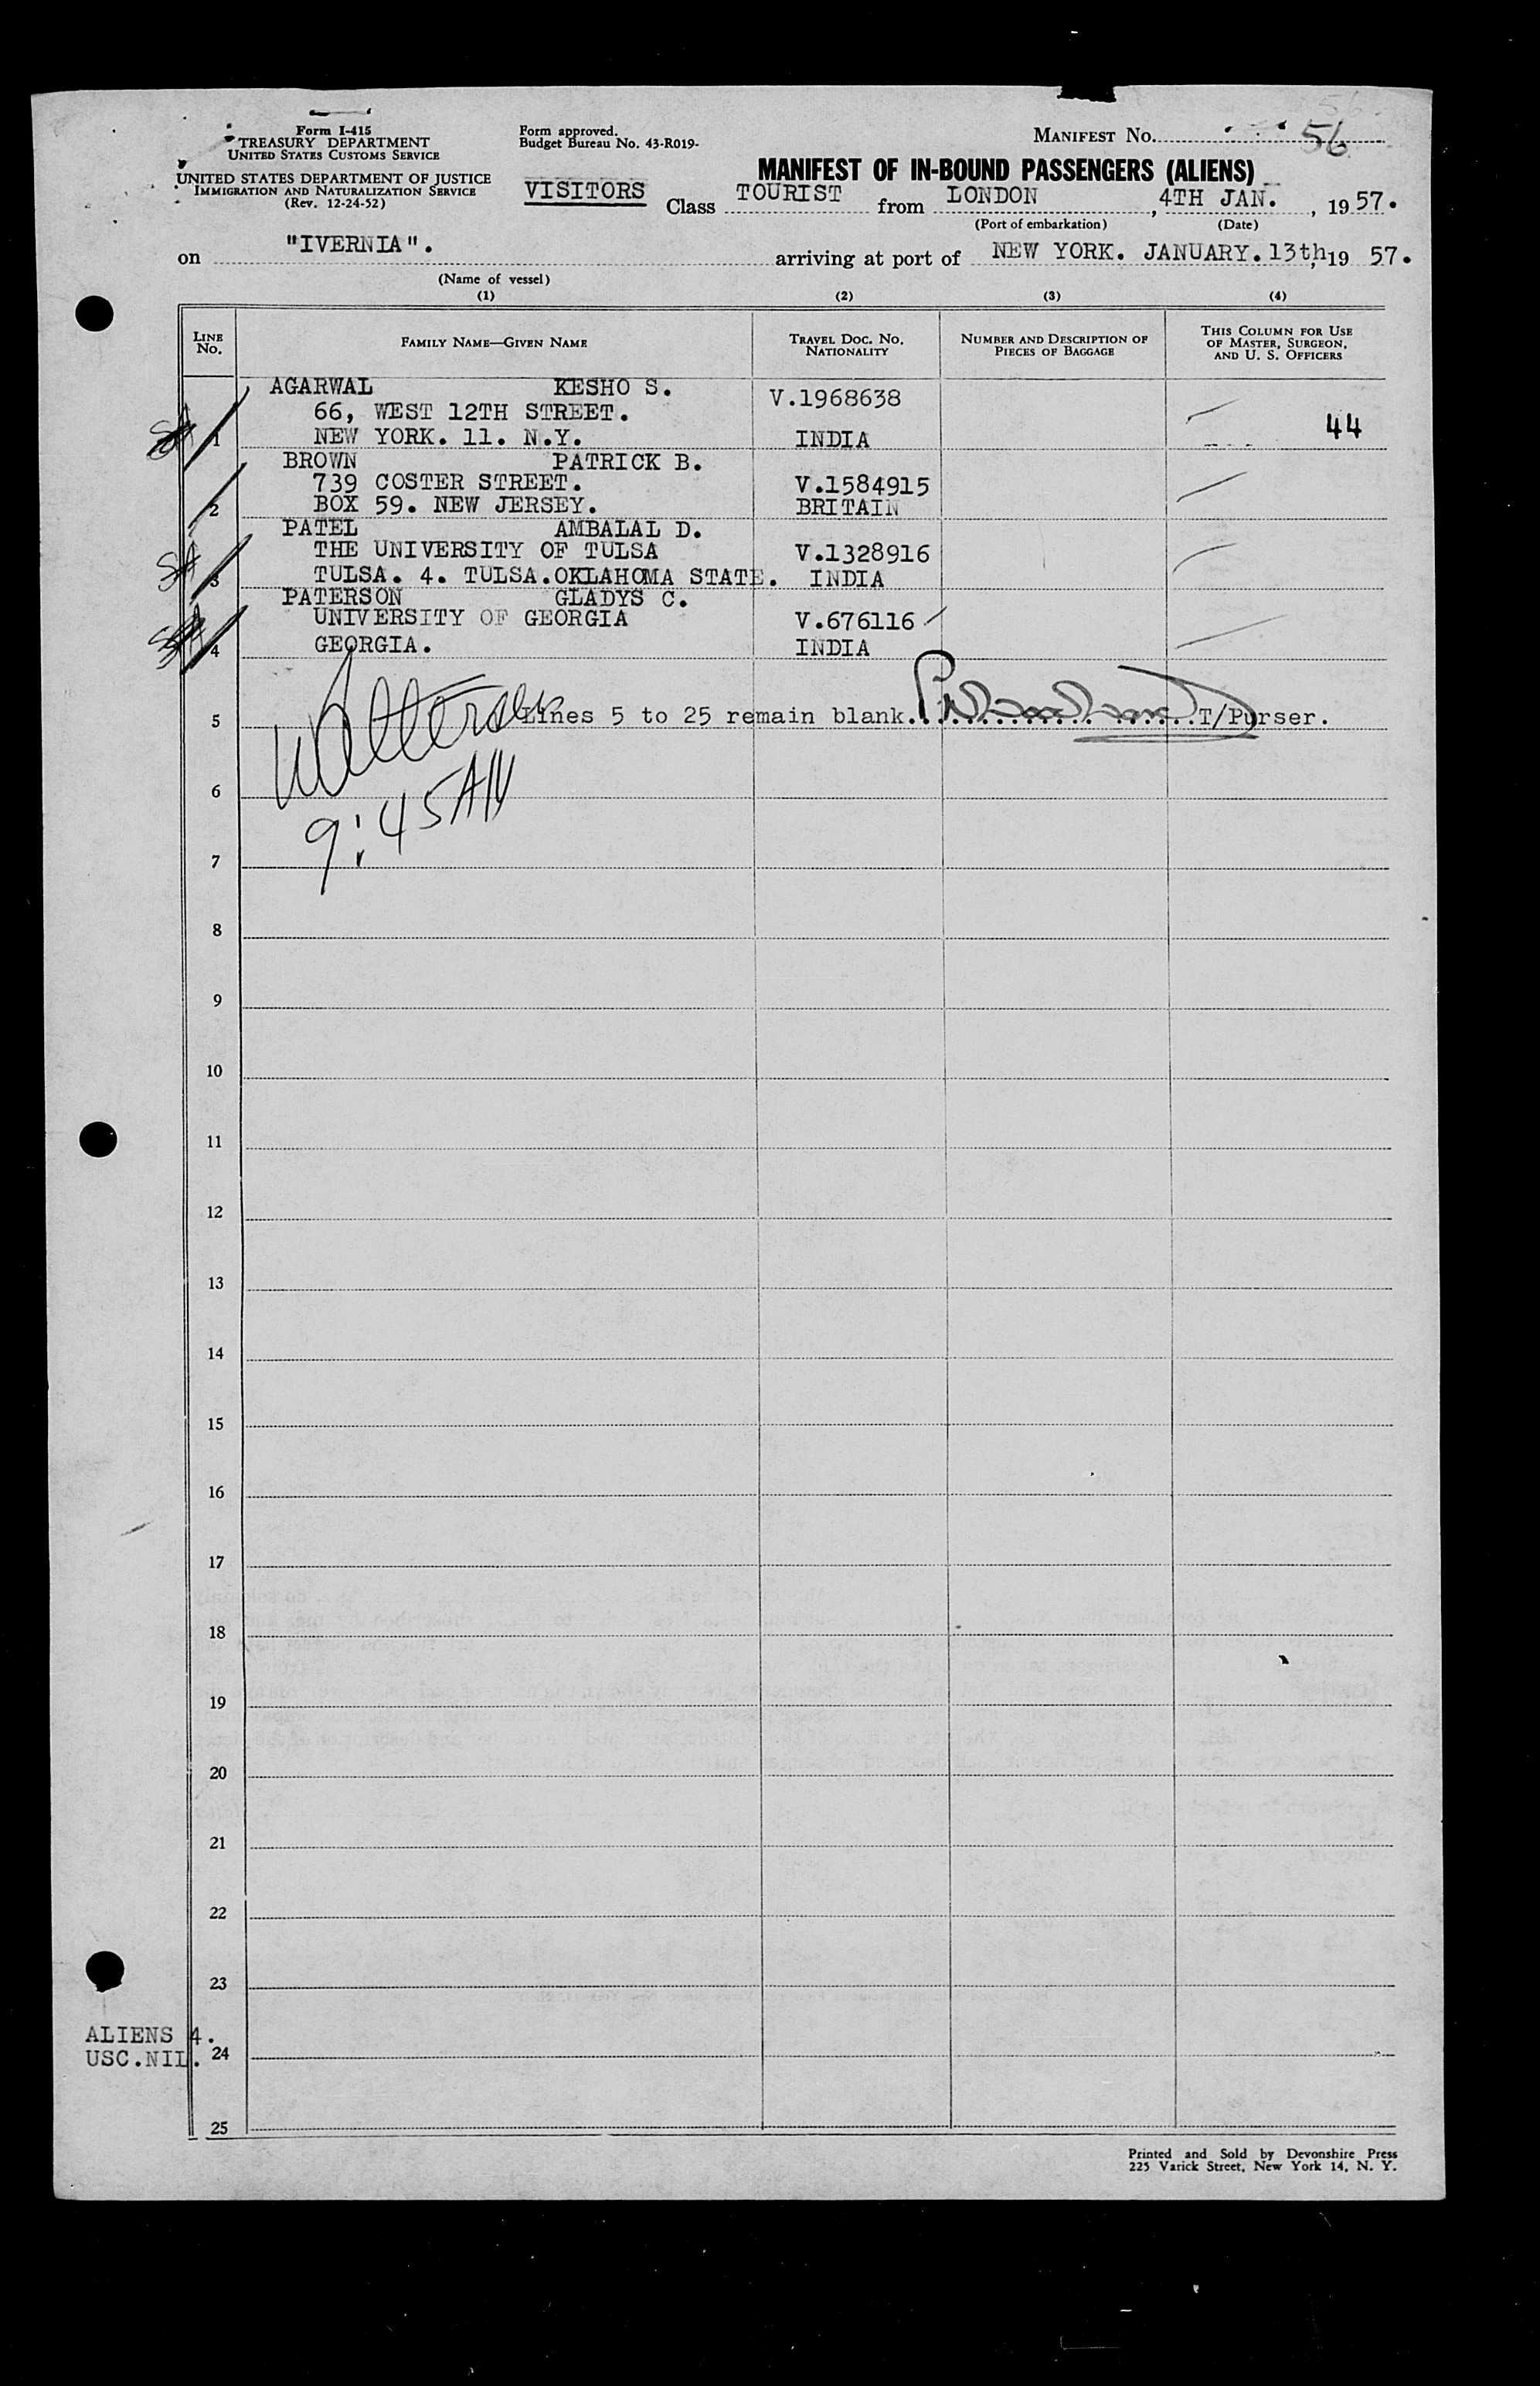 Form I-415
TREASURY DEPARTMENT
UNITED STATES CUSTOMS SERVICE
UNITED STATES DEPARTMENT OF JUSTICE
IMMIGRATION AND NATURALIZATION SERVICE
(Rev. 12-24-52)
Form approved.
Budget Bureau No. 43-R019-
MANIFEST No. 56
MANIFEST OF IN-BOUND PASSENGERS (ALIENS)
VISITORS Class TOURIST from LONDON, 4TH JAN., 1957.
(Port of embarkation) (Date)
on "IVERNIA". arriving at port of NEW YORK. JANUARY. 13th, 19 57.
(Name of vessel)
(1) (2) (3) (4)
LINE No. FAMILY NAME—GIVEN NAME TRAVEL DOC. No. NATIONALITY NUMBER AND DESCRIPTION OF PIECES OF BAGGAGE THIS COLUMN FOR USE OF MASTER, SURGEON, AND U. S. OFFICERS
AGARWAL KESHO S. V.1968638
66, WEST 12TH STREET. 44
SA 1 NEW YORK. 11. N.Y. INDIA
BROWN PATRICK B.
739 COSTER STREET. V.1584915
2 BOX 59. NEW JERSEY. BRITAIN
PATEL AMBALAL D.
THE UNIVERSITY OF TULSA V.1328916
SA 3 TULSA. 4. TULSA.OKLAHOMA STATE. INDIA
PATERSON GLADYS C.
UNIVERSITY OF GEORGIA V.676116
4 GEORGIA. INDIA
5 Lines 5 to 25 remain blank. T/Purser.
6
9:45AM
7
8
9
10
11
12
13
14
15
16
17
18
19
20
21
22
23
ALIENS 4.
USC.NIL. 24
25
Printed and Sold by Devonshire Press
225 Varick Street, New York 14, N. Y.